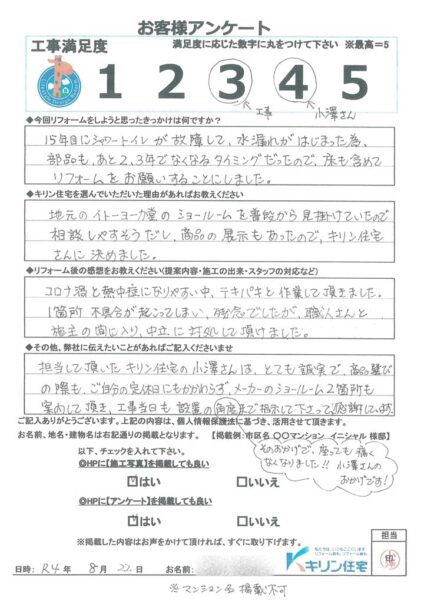 お客様アンケート
工事満足度 満足度に応じた数字に丸をつけて下さい ※最高=5
1 2 3 4 5
工事 小澤さん
◆今回リフォームをしようと思ったきっかけは何ですか?
15年目にシャワートイレが故障して、水漏れがはじまった為、
部品も、あと2,3年でなくなるタイミングだったので、床も含めて
リフォームをお願いすることにしました。
◆キリン住宅を選んでいただいた理由があればお教えください
地元のイトーヨーカ堂のショールームを普段から見掛けていたので
相談しやすそうだし、商品の展示もあったので、キリン住宅
さんに決めました。
◆リフォーム後の感想をお教えください(提案内容・施工の出来・スタッフの対応など)
コロナ渦と熱中症になりやすい中、テキパキと作業して頂きました。
1箇所不具合が起こってしまい、残念でしたが、職人さんと
施主の間に入り、中立に対処して頂けました。
◆その他、弊社に伝えたいことがあればご記入くださいませ
担当して頂いたキリン住宅の小澤さんは、とても誠実で、商品選び
の際も、ご自分の定休日にもかかわらず、メーカーのショールーム2箇所も
案内して頂き、工事当日も設置の角度まで指示して下さって、感謝して
ご記入ありがとうございます。上記の内容は、個人情報保護法に基づき、活用させて頂きます。
お名前、地名・建物名は右記通りの掲載となります。 【掲載例:市区名 〇〇マンション イニシャル 様邸】
そのおかげで、座っても痛く
なくなりました!! 小澤さんの
おかげです!
以下、チェックを入れて下さい。
◎HPに【施工写真】を掲載しても良い
はい いいえ
◎HPに【アンケート】を掲載しても良い
はい いいえ
※掲載した内容はお声をかけて頂ければ、すぐに取り下げます。
キリン住宅
担当
日時: R4 年 8 月 22 日 お名前:
※マンション名 掲載不可